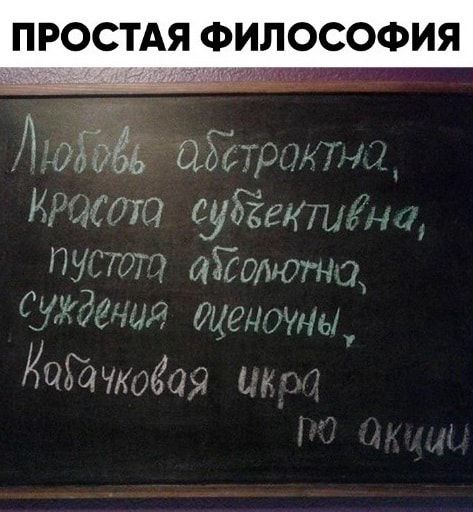 ПРОСТАЯ ФИЛОСОФИЯ
Любовь абстрактна,
красота субъективна,
пустота абсолютна,
суждения оценочны,
Кабачковая икра
по акции